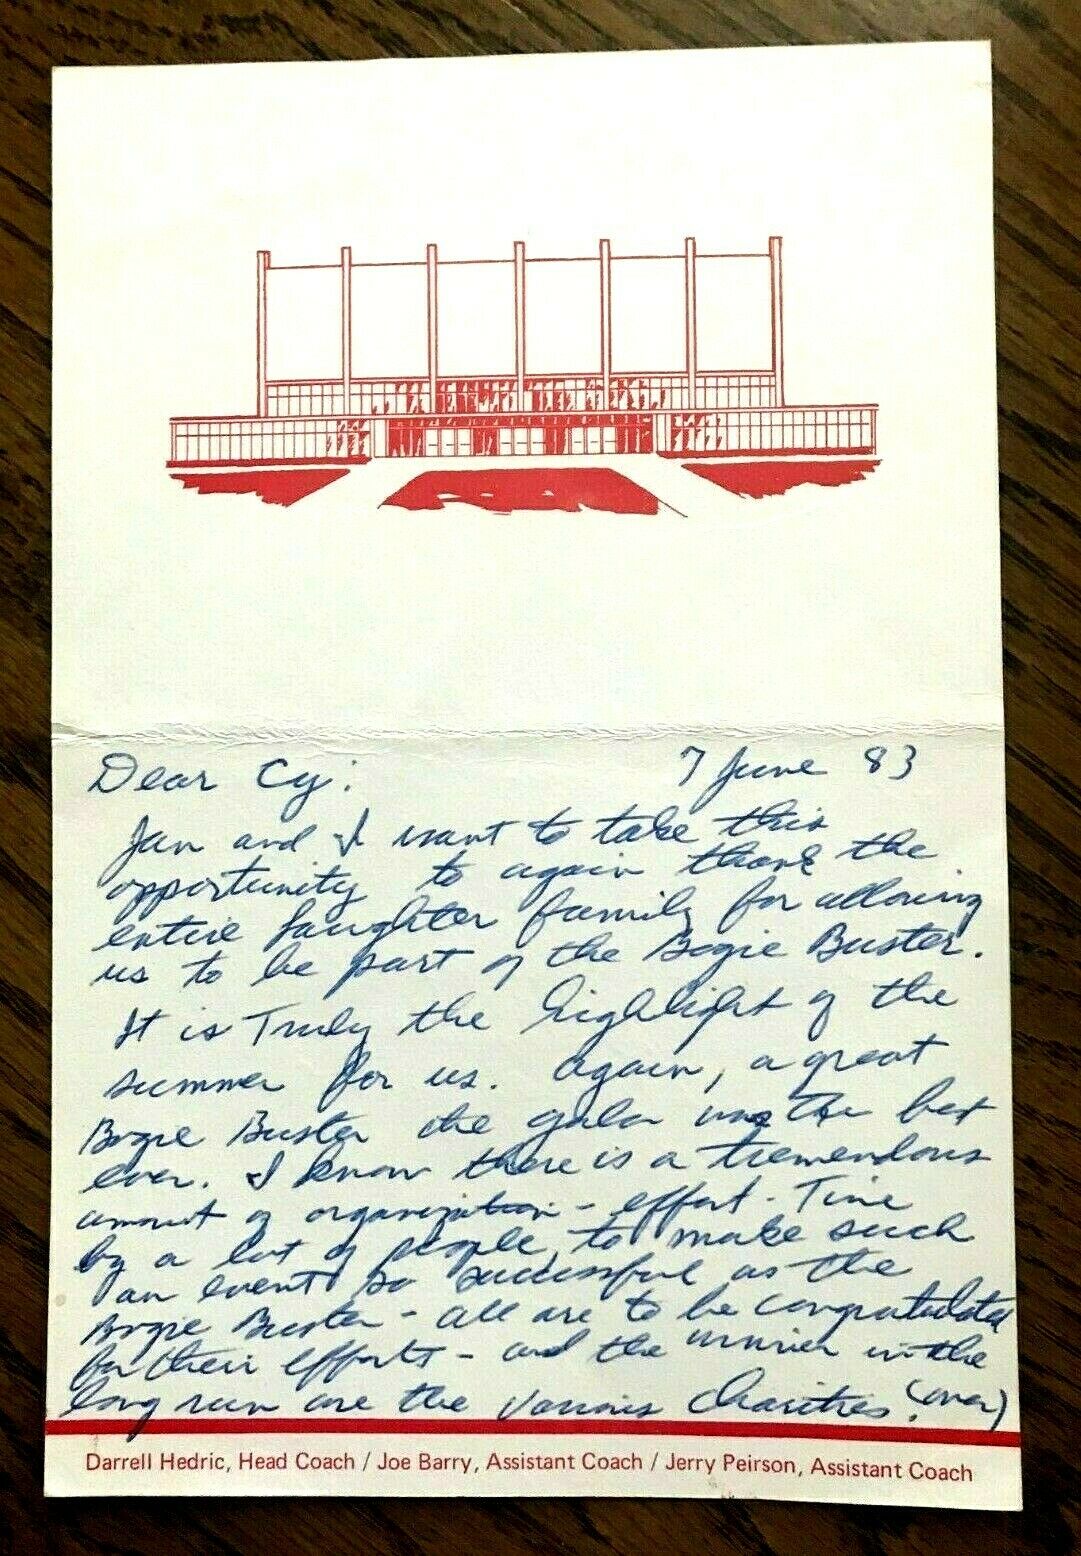 Dear Cy: 7 June 83
Jan and I want to take this
opportunity to again thank the
entire Laughter family for allowing
us to be part of the Bogie Buster.
It is Truly the highlight of the
summer for us. Again, a great
Bogie Buster the gala was the best
ever. I know there is a tremendous
amount of organization - effort - Time
by a lot of people, to make such
an event so successful as the
Bogie Buster - all are to be congratulated
for their efforts - and the winner in the
long run are the various charities. (over)
Darrell Hedric, Head Coach / Joe Barry, Assistant Coach / Jerry Peirson, Assistant Coach